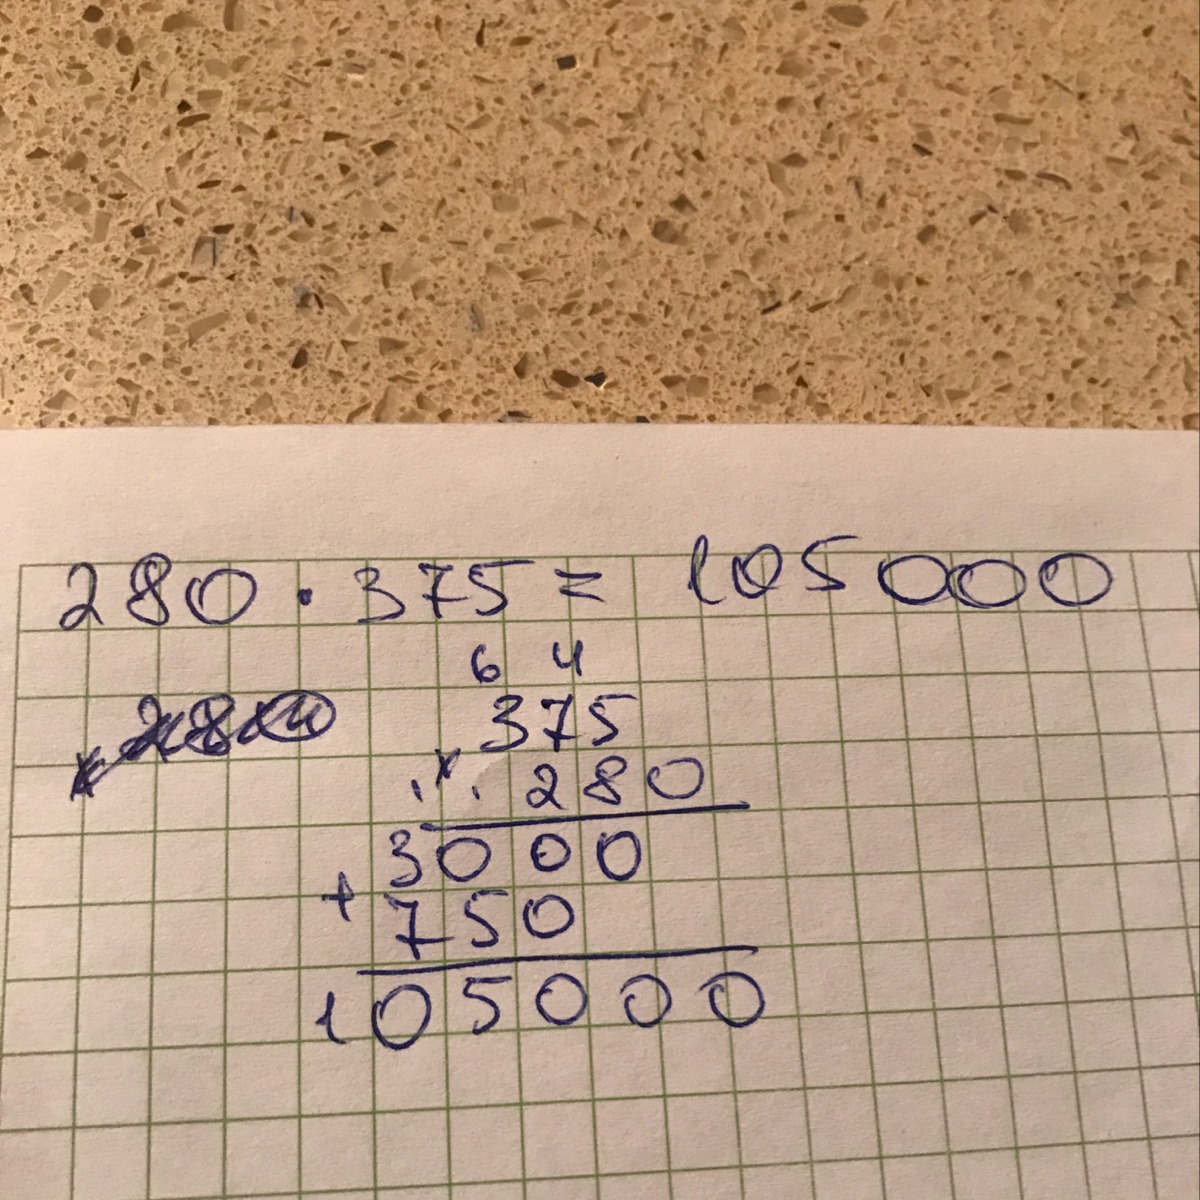 280 · 375 = 105000
6 4
375
× 280
3000
+ 750
105000